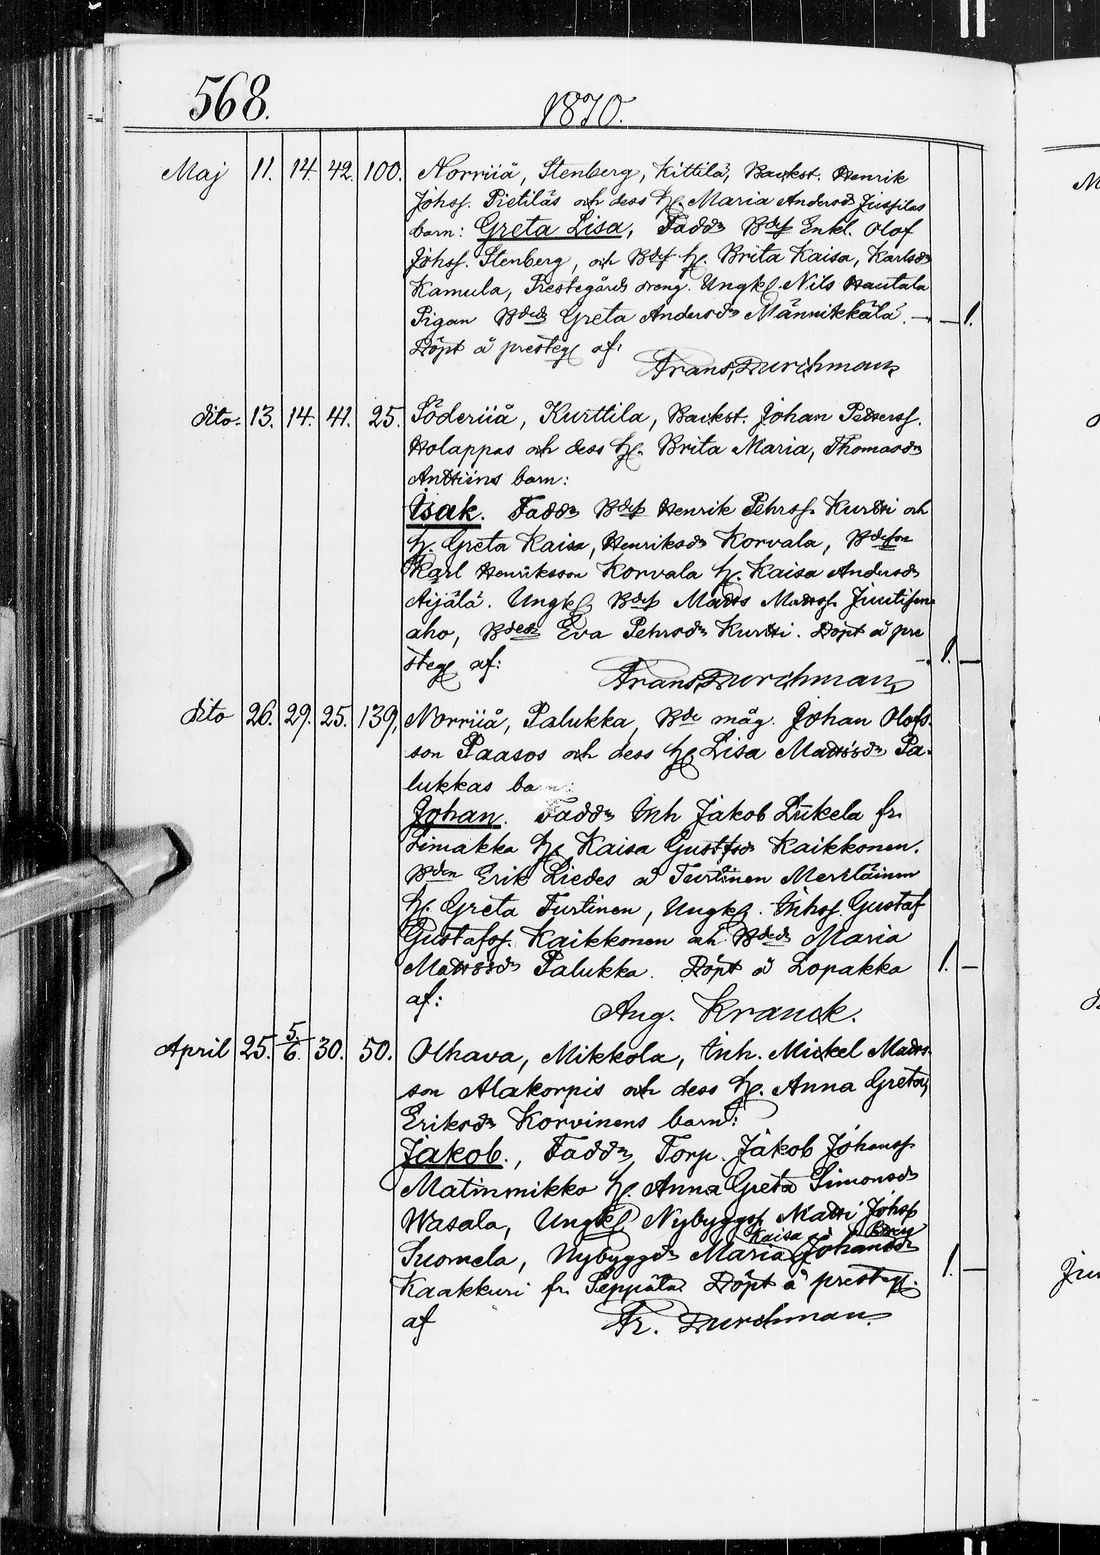 568.
1870.
Maj 11. 14. 42. 100. Norriiå, Stenberg, Kittilä, Backst. Henrik
Johs. Pietiläs och dess H. Maria Andersdr Jussilas
barn: Greta Lisa, Faddr Bdes Enkl. Olof
Johs. Stenberg, och Bdes H. Brita Kaisa, Karlsdr
Kamula, Prestegårds dreng. Ungk. Nils Hautala
Pigan Bdedr Greta Andersdr Männikkälä. — — 1.
Döpt å presteg af:
Frans Durchman
dito. 13. 14. 41. 25. Söderiiå, Kurttila, Backst. Johan Peterss.
Holappas och dess H. Brita Maria, Thomasdr
Anttiins barn:
Isak. Faddr Bdes Henrik Pehrss. Kurtti och
H. Greta Kaisa, Henriksdr Korvala, Bdeson
Karl Henriksson Korvala H. Kaisa Andersdr
Aijälä. Ungk. Bdes Matts Mattss.
aho, Bdedr Eva Pehrsdr Kurtti. Döpt å pre
steg af: 1. —
Frans Durchman
dito 26. 29. 25. 139, Norriiå, Palukka, Bde måg. Johan Olofs
son Paasos och dess H. Lisa Mattsdr Pa-
lukkas barn:
Johan. Faddr Inh Jakob Liikela fr.
Simakka H. Kaisa Gustfsdr Kaikkonen.
Bden Erik Liedes å Turtinen Meriläinen
H. Greta Turtinen, Ungk. Inhs. Gustaf
Gustafss. Kaikkonen och Bdedr Maria
Mattsdr Palukka. Döpt å Lopakka 1. —
af:
Aug. Kranck.
April 25. 5/6. 30. 50. Olhava, Mikkola, Inh. Mickel Matts-
son Alakorpis och dess H. Anna Greta,
Eriksdr Korvinens barn:
Jakob., Faddr Torp. Jakob Johanss
Matinmikko H. Anna Greta Simonsdr
Wasala, Ungk. Nybyggs. Matts Johss
Kaisa
Suomela, Nybyggdr Maria Johansdr
Kaakkuri fr. Seppälä Döpt å presteg. 1. —
af
Fr. Durchman